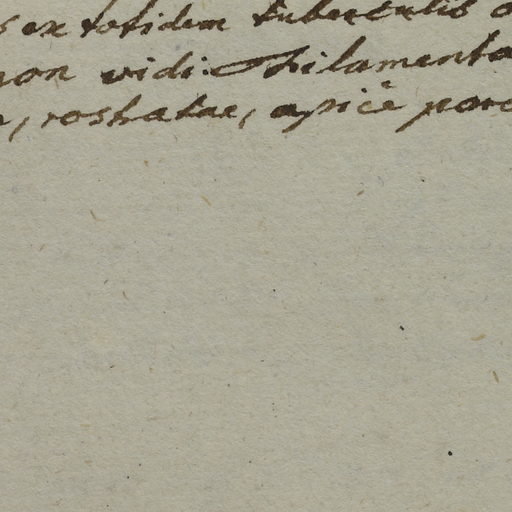 s ex totidem tuberculis
non vidi. Filamenta
, rostratae, apice